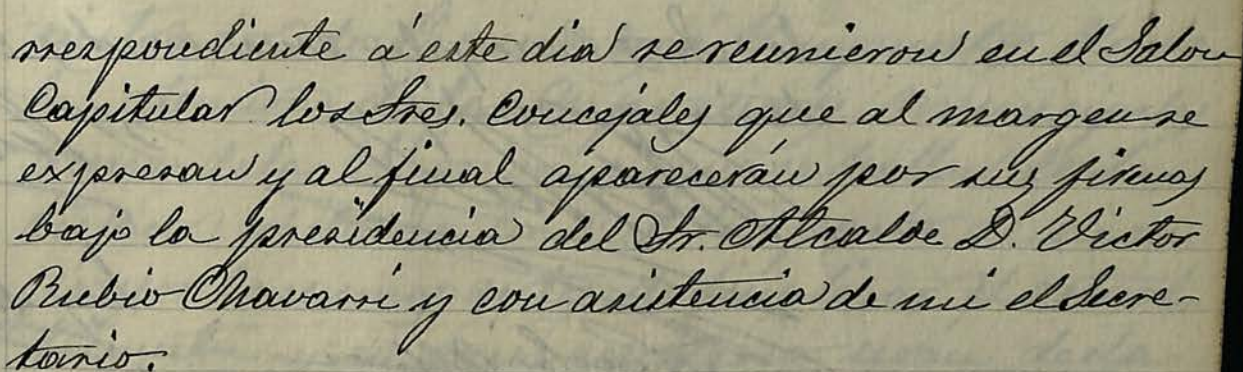 rrespondiente á este dia se reunieron en el Salon
Capitular los Sres. Concejales que al margen se
expresan y al final aparecerán por sus firmas
bajo la presidencia del Sr. Alcalde D. Victor
Rubio Chavarri y con asistencia de mi el Secre-
tario.